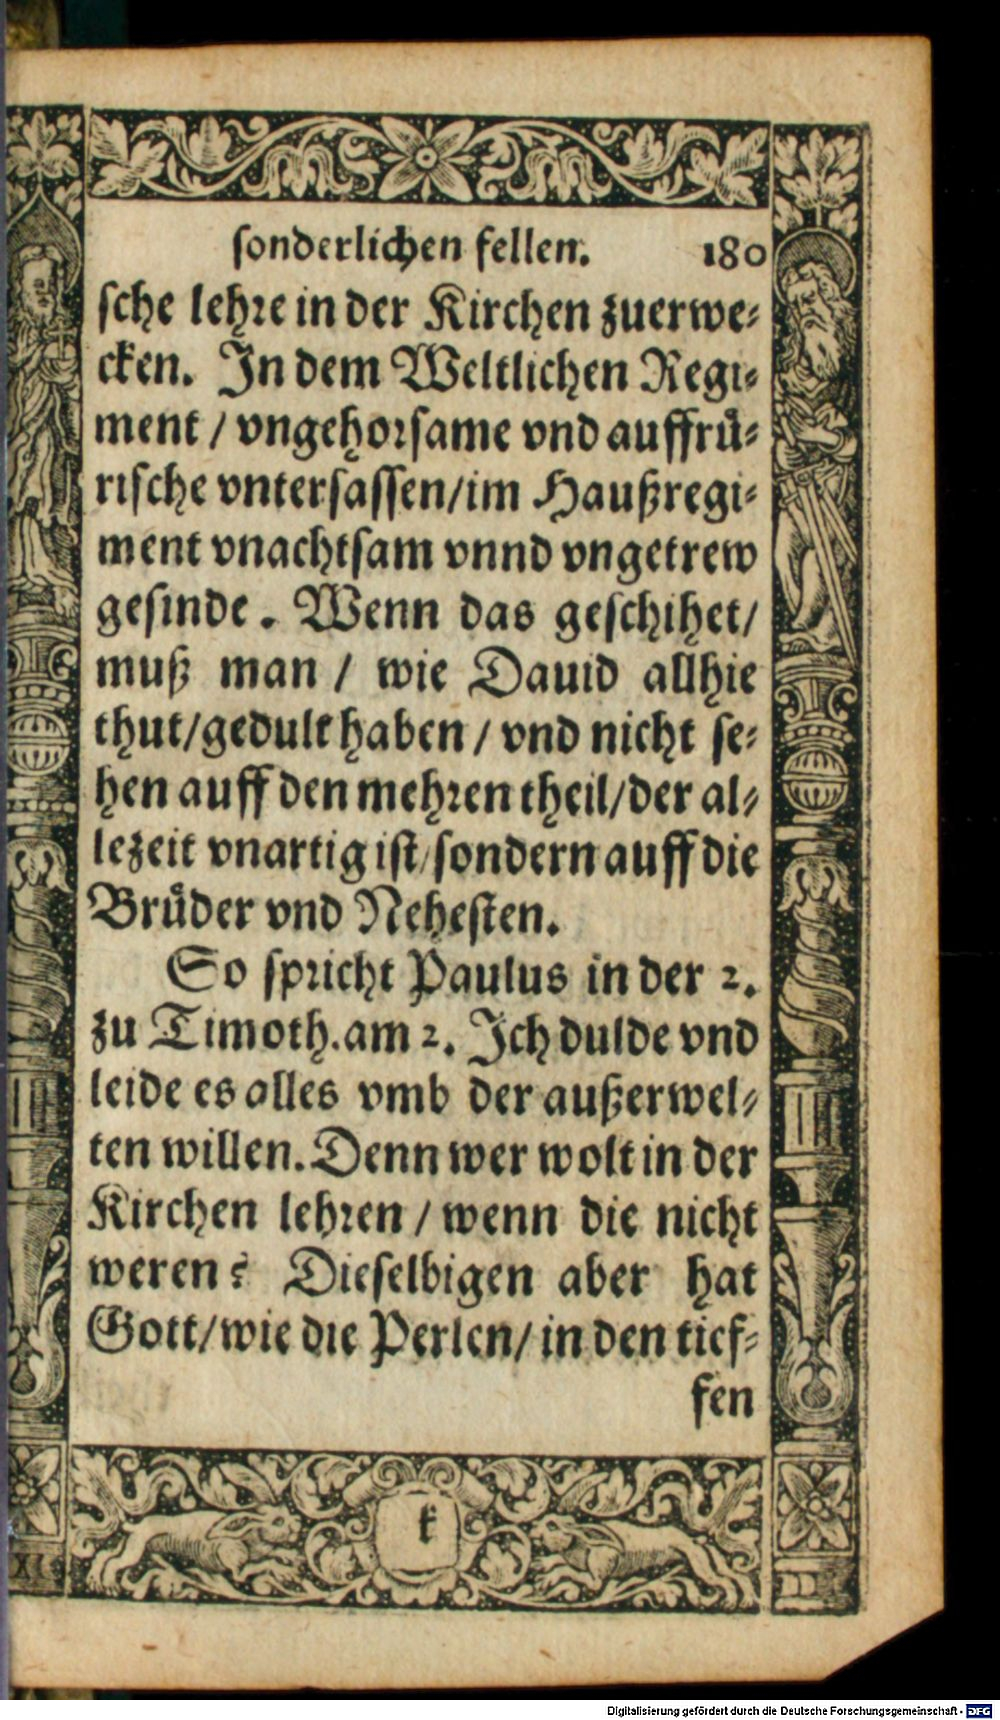 sonderlichen fellen. 180
sche lehre in der Kirchen zuerwe⸗
cken. In dem Weltlichen Regi⸗
ment / vngehorsame vnd auffruͤ⸗
rische vntersassen/im Haußregi⸗
ment vnachtsam vnnd vngetrew
gesinde. Wenn das geschihet/
muß man / wie Dauid allhie
thut/gedult haben / vnd nicht se⸗
hen auff den mehren theil/der al⸗
lezeit vnartig ist/sondern auff die
Bruͤder vnd Nehesten.
So spricht Paulus in der 2.
zu Timoth.am 2. Ich dulde vnd
leide es alles vmb der außerwel⸗
ten willen. Denn wer wolt in der
Kirchen lehren / wenn die nicht
weren? Dieselbigen aber hat
Gott/wie die Perlen/in den tief⸗
fen
k
Digitalisierung gefördert durch die Deutsche Forschungsgemeinschaft - DFG